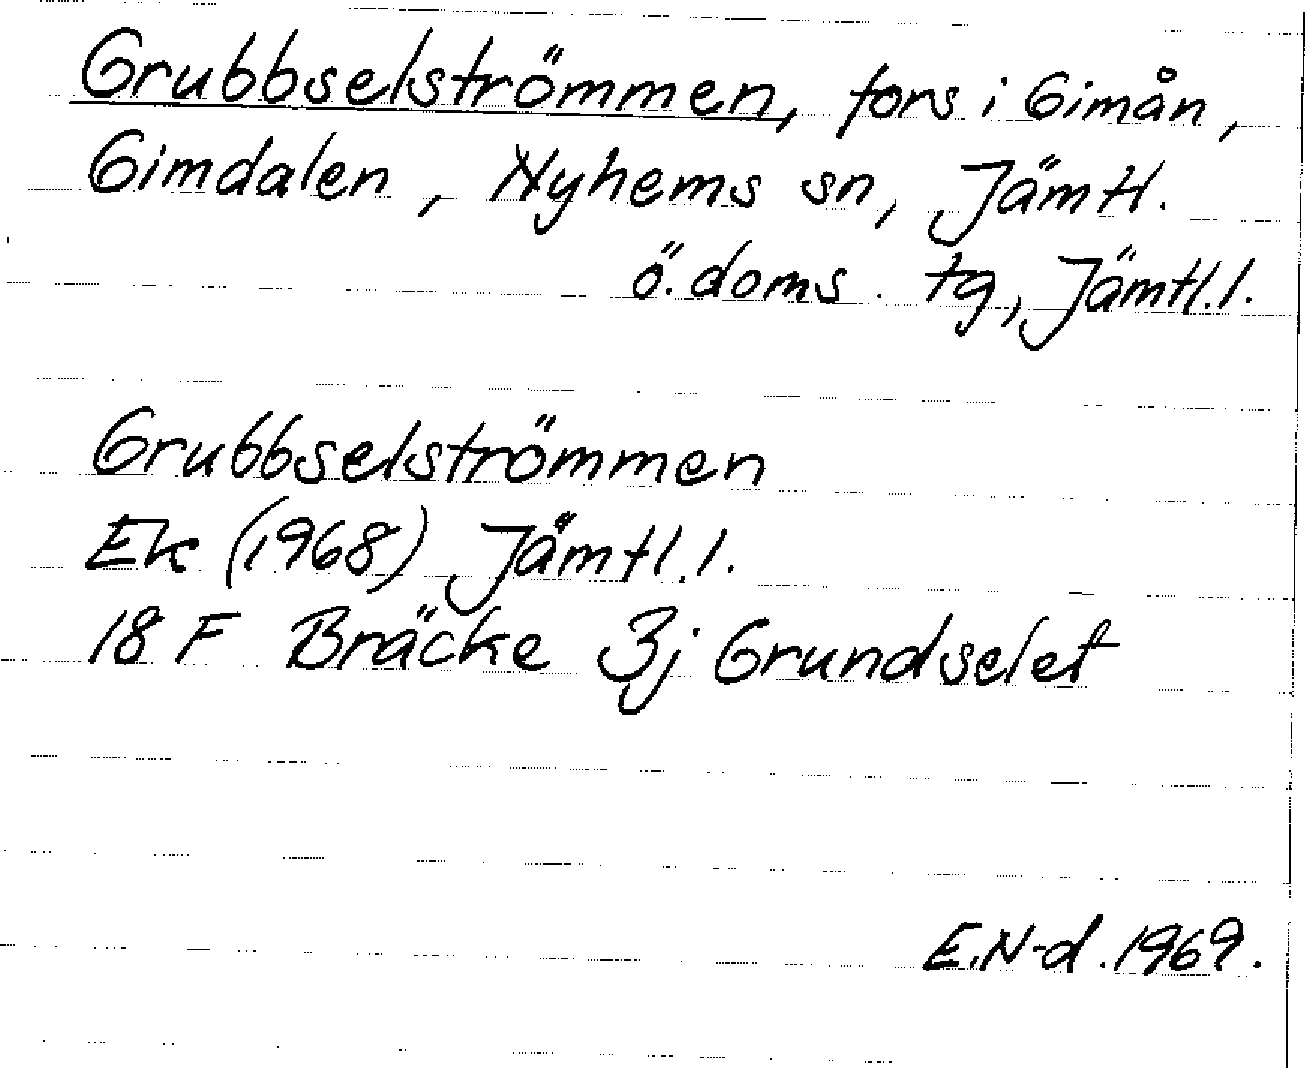 Grubbselströmmen, fors i Gimån,
Gimdalen, Nyhems sn, Jämtl.
ö. doms. tg, Jämtl. l.
Grubbselströmmen
Ek (1968) Jämtl. l.
18 F Bräcke 3j Grundselet
E.N-d. 1969.